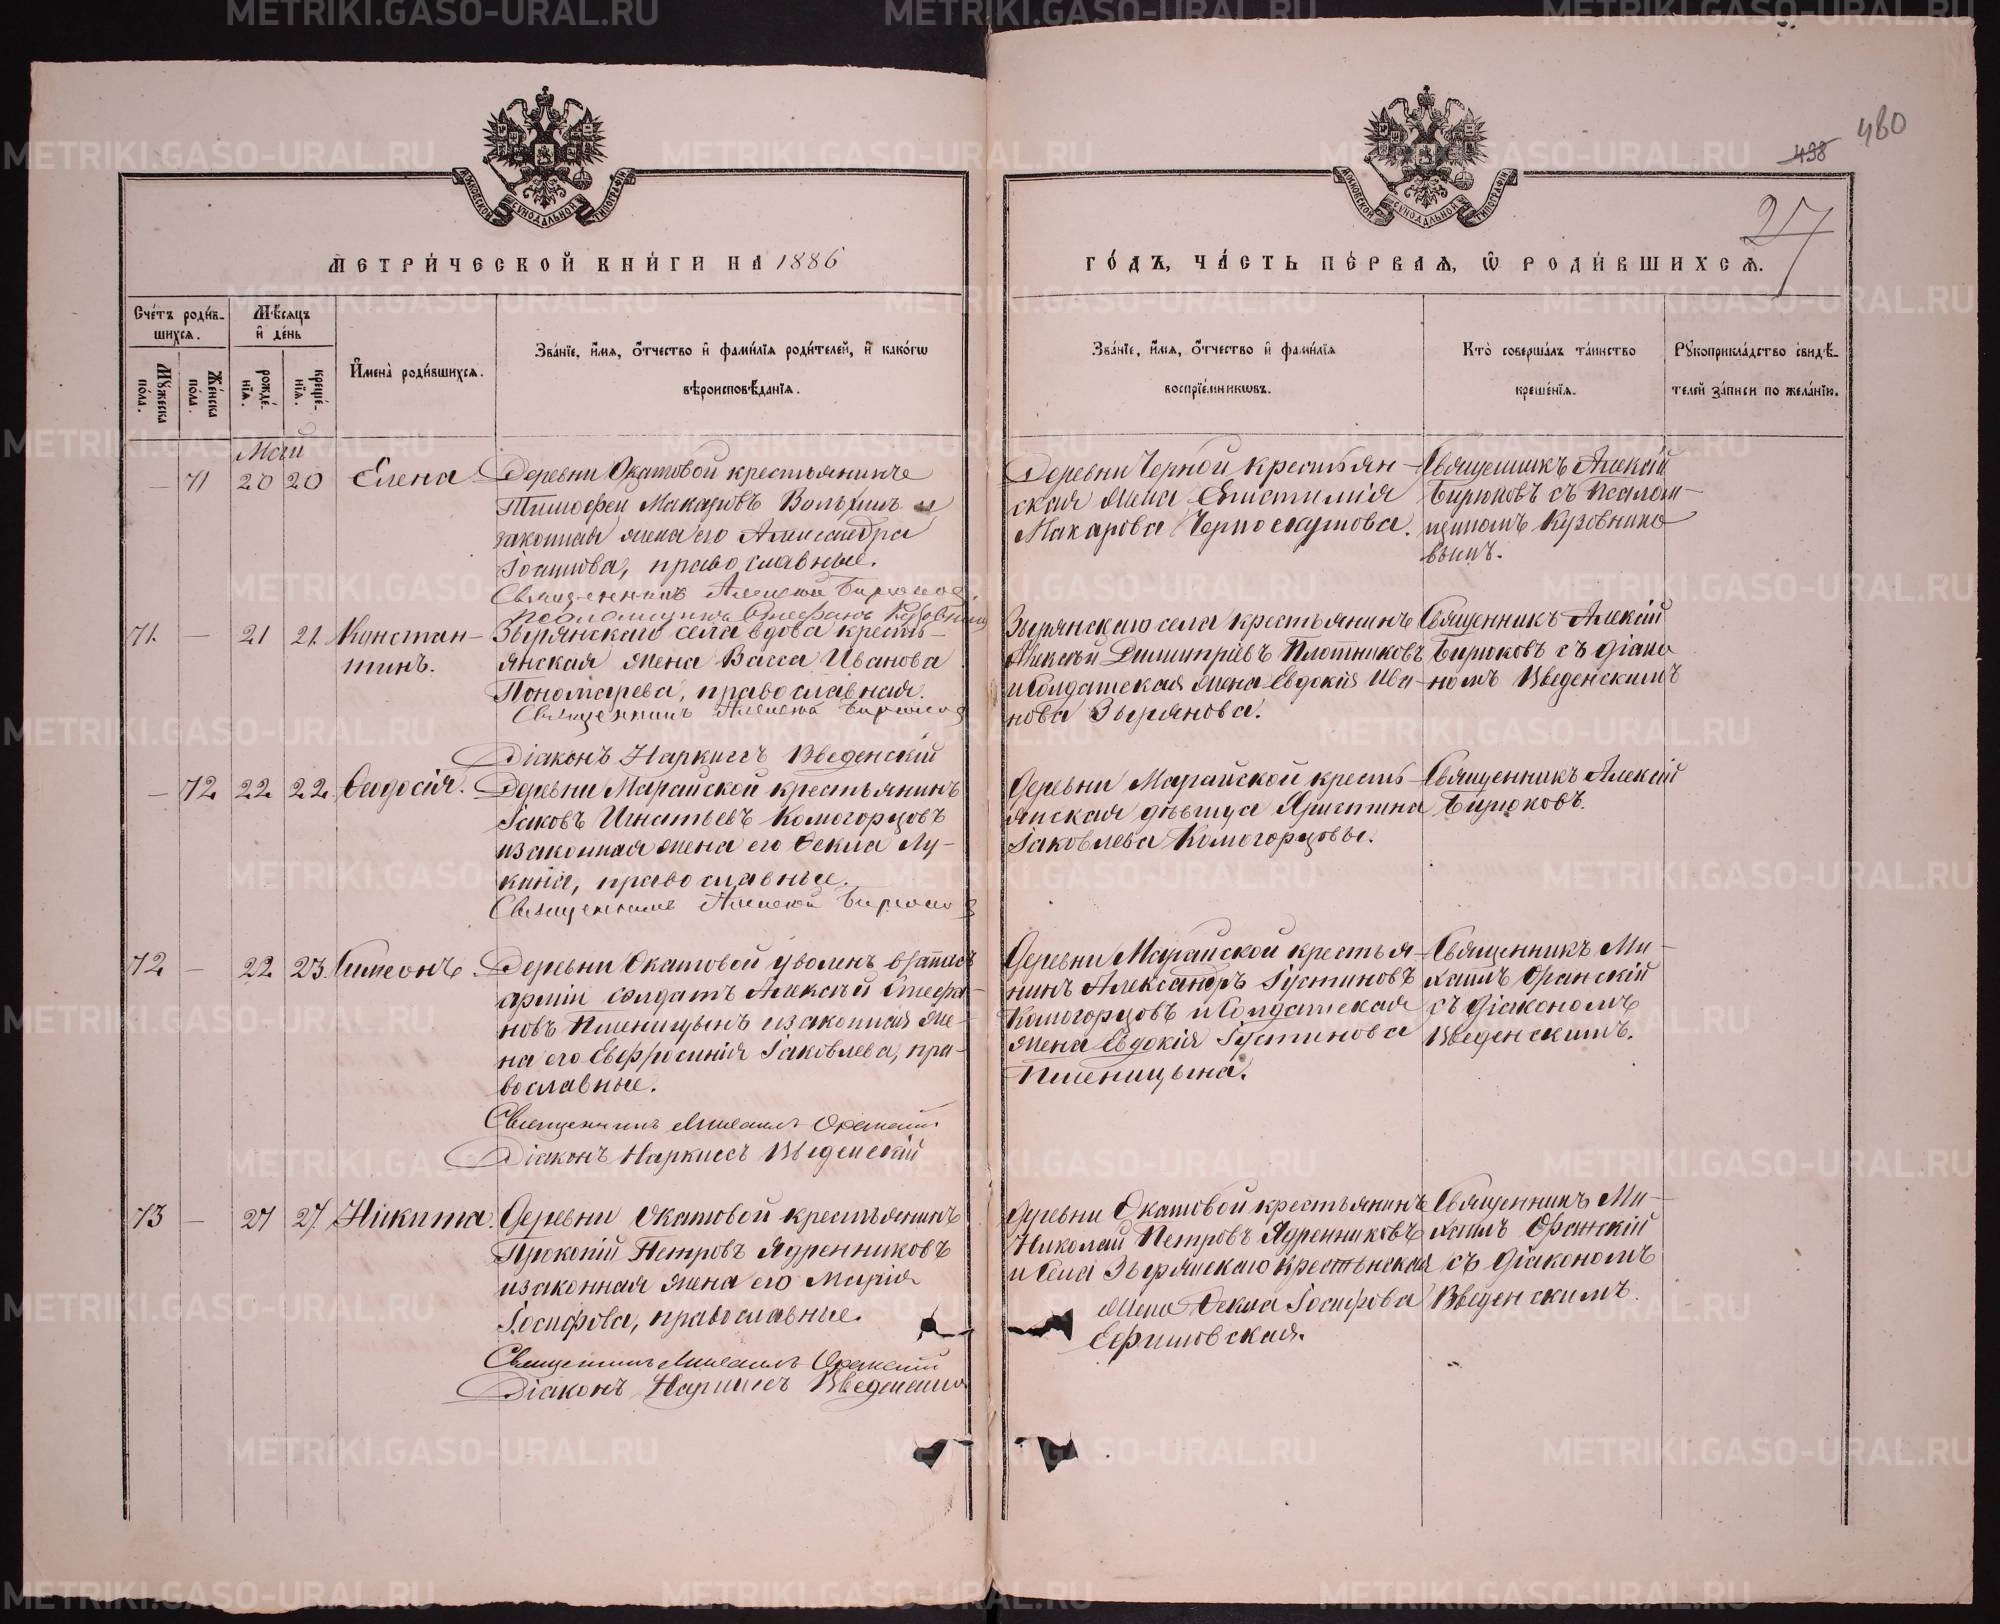 480
498
27
МОСКОВСКОЙ СУНОДАЛЬНОЙ ТИПОГРАФІИ
МОСКОВСКОЙ СУНОДАЛЬНОЙ ТИПОГРАФІИ
МЕТРИ́ЧЕСКОЙ КНИ́ГИ НА 1886
ГО́ДЪ, ЧА́СТЬ ПЕ́РВАЯ, Ѡ РОДИ́ВШИХСЯ.
Сче́тъ роди́вшихся.
Мꙋ́жеска по́ла.
Же́нска по́ла.
Мѣ́сяцъ и҆ де́нь
рожде́нїя.
креще́нїя.
И҆мена̀ роди́вшихся.
Зва́нїе, и҆́мя, ѻ҆́тчество и҆ фами́лїя роди́телей, и҆ како́гѡ
вѣроисповѣ́данїя.
Зва́нїе, и҆́мя, ѻ҆́тчество и҆ фами́лїя
воспрїе́мникѡвъ.
Кто̀ соверша́лъ та́инство
креще́нїя.
Рꙋкоприкла́дство свидѣ́-
телей за́писи по жела́нїю.
Май
– 71 20 20 Елена
Деревни Окатовой крестьянинъ
Тимофей Макаровъ Вольхинъ и
законная жена его Александра
Іоакимова, православные.
Священникъ Алексій Бирюковъ.
Псаломщикъ Стефанъ Кузовниковъ
Деревни Черной крестьян-
ская жена Епистимія
Макарова Черноскутова.
Священникъ Алексій
Бирюковъ съ псалом-
щикомъ Кузовнико
вымъ.
71. – 21 21. Констан-
тинъ.
Зырянскаго села вдова кресть-
янская жена Васса Иванова
Пономарева, православная.
Священникъ Алексій Бирюковъ
Діаконъ Наркиссъ Введенскій
Зырянскаго села крестьянинъ
Алексѣй Димитріевъ Плотниковъ
и солдатская жена Евдокія Ива-
нова Зырянова.
Священникъ Алексій
Бирюковъ съ діако
номъ Введенскимъ
– 72 22 22. Ѳеодосія.
Деревни Марайской крестьянинъ
Іаковъ Игнатьевъ Комогорцовъ
и законная жена его Ѳекла Лу-
кина, православные.
Священникъ Алексій Бирюковъ
Деревни Марайской кресть-
янская дѣвица Христина
Іаковлева Комогорцовы.
Священникъ Алексій
Бирюковъ.
72 – 22 23. Симеонъ.
Деревни Окатовой уволен в запасъ
арміи солдатъ Алексѣй Стефа-
новъ Пшеницынъ и законная же-
на его Евфросинія Іаковлева, пра-
вославные.
Священникъ Михаилъ Оранскій
Діаконъ Наркиссъ Введенскій
Деревни Марайской крестья-
нинъ Александръ Іустиновъ
Комогорцовъ и солдатская
жена Евдокія Іустинова
Пшеницына.
Священникъ Ми-
хаилъ Оранскій
съ діакономъ
Введенскимъ.
73 – 27 27 Никита.
Деревни Окатовой крестьянинъ
Прокопій Петровъ Ядренниковъ
и законная жена его Марія
Іосифова, православные.
Священникъ Михаилъ Оранскій
Діаконъ Наркиссъ Введенскій
Деревни Окатовой крестьянинъ
Николай Петровъ Ядренниковъ
и села Зырянскаго крестьянская
жена Ѳекла Іосифова
Ефимовская.
Священникъ Ми-
хаилъ Оранскій
съ діакономъ
Введенскимъ.
METRIKI.GASO-URAL.RU